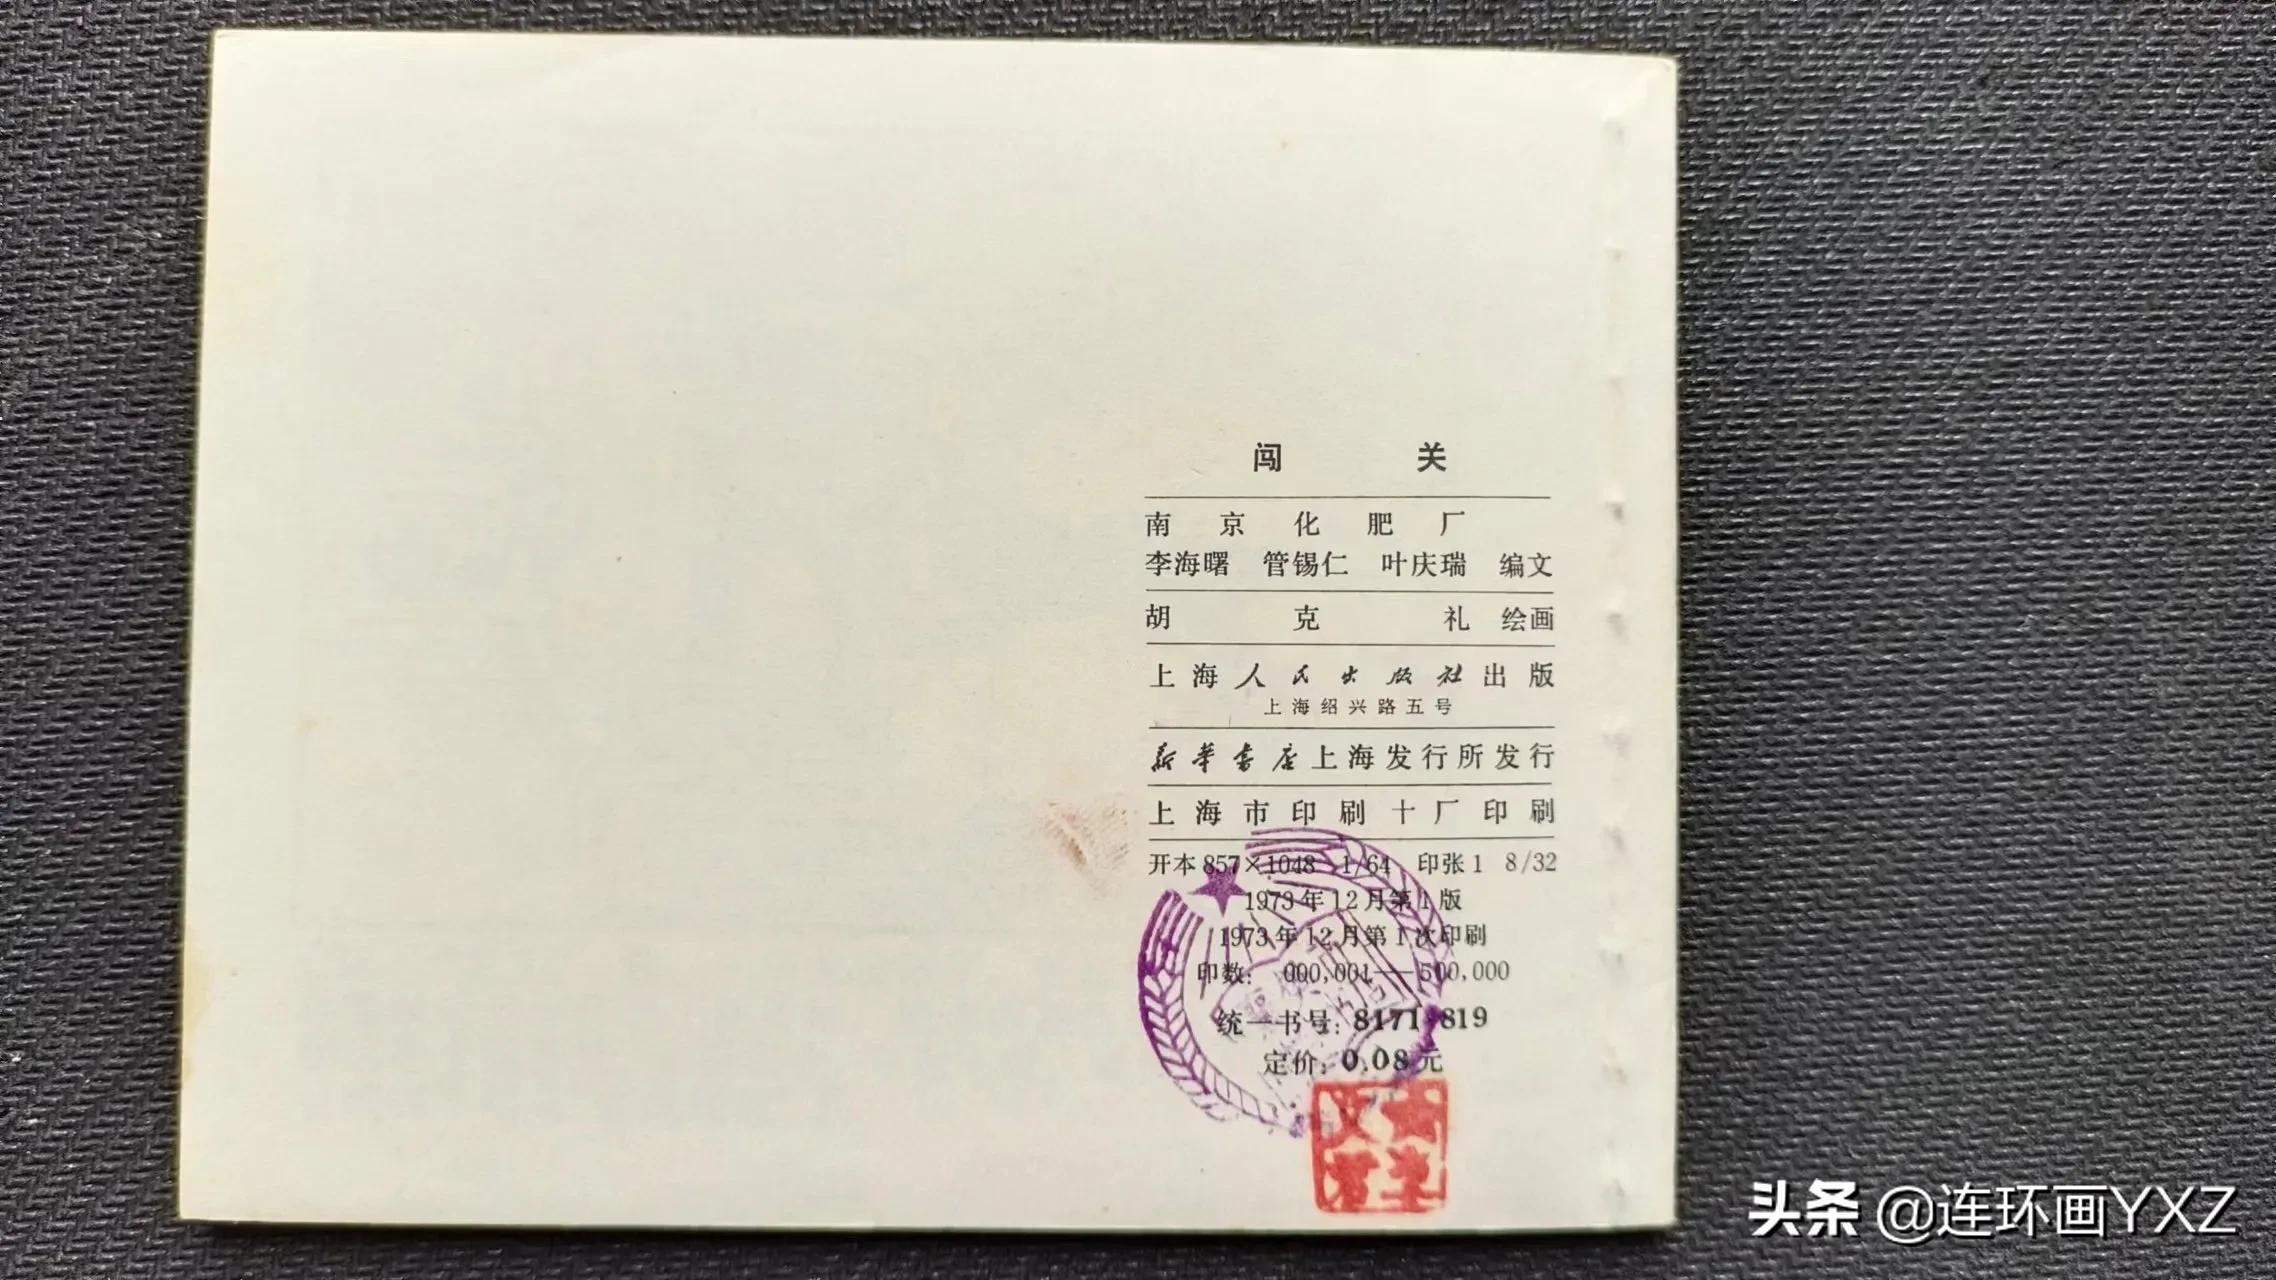 闯关
南京化肥厂
李海曙 管锡仁 叶庆瑞 编文
胡克礼 绘画
上海人民出版社出版
上海绍兴路五号
新华书店上海发行所发行
上海市印刷十厂印刷
开本 857×1048 1/64 印张 1 8/32
1973年12月第1版
1973年12月第1次印刷
印数: 000,001—500,000
统一书号: 8171·819
定价: 0.08元
头条 @连环画YXZ